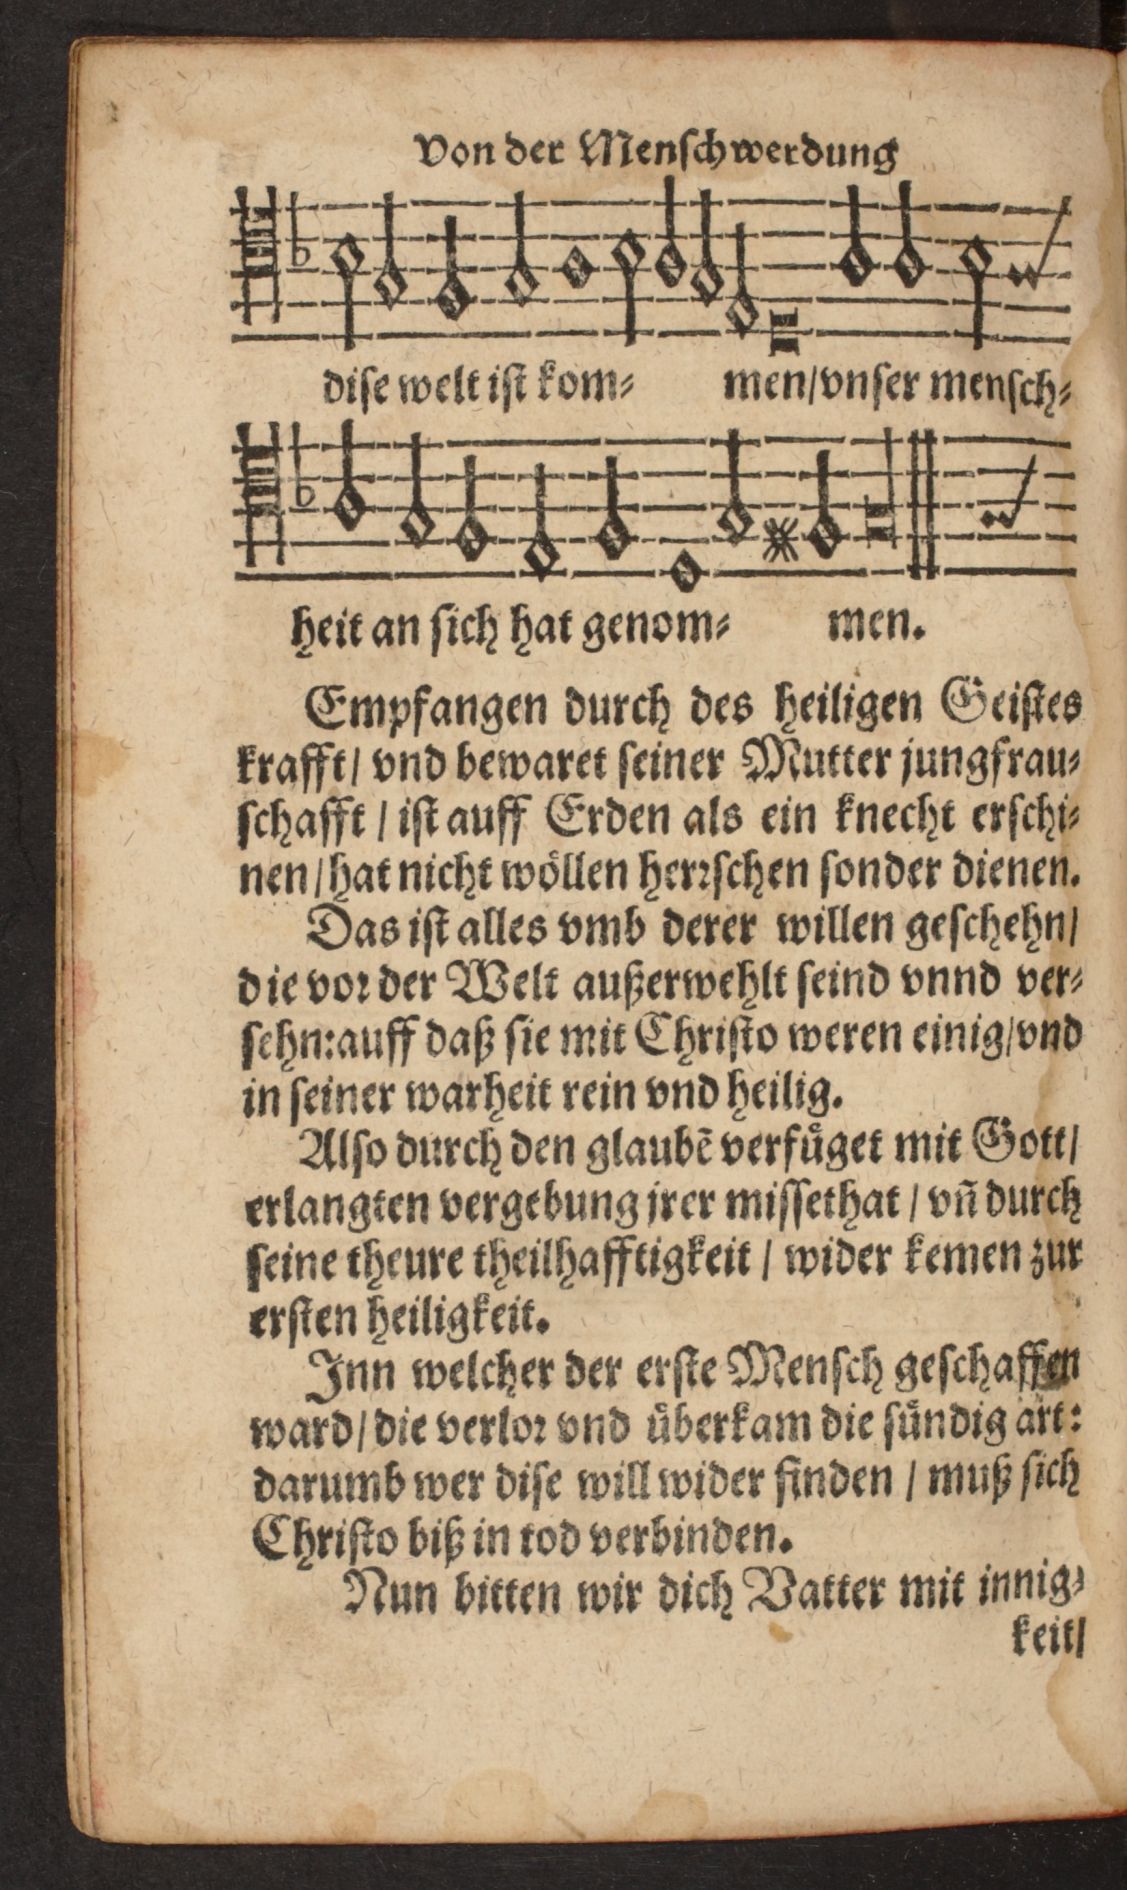 Von der Menschwerdung
dise welt ist kom⸗ men/vnser mensch⸗
heit an sich hat genom⸗ men.
Empfangen durch des heiligen Geistes
krafft/ vnd bewaret seiner Mutter jungfrau⸗
schafft / ist auff Erden als ein knecht erschi⸗
nen/hat nicht wöllen herrschen sonder dienen.
Das ist alles vmb derer willen geschehn/
die vor der Welt außerwehlt seind vnnd ver⸗
sehn:auff daß sie mit Christo weren einig/vnd
in seiner warheit rein vnd heilig.
Also durch den glaubē verfüget mit Gott/
erlangten vergebung jrer missethat / vñ durch
seine theure theilhafftigkeit / wider kemen zur
ersten heiligkeit.
Inn welcher der erste Mensch geschaffen
ward/die verlor vnd überkam die sündig art:
darumb wer dise will wider finden / muß sich
Christo biß in tod verbinden.
Nun bitten wir dich Vatter mit innig⸗
keit/